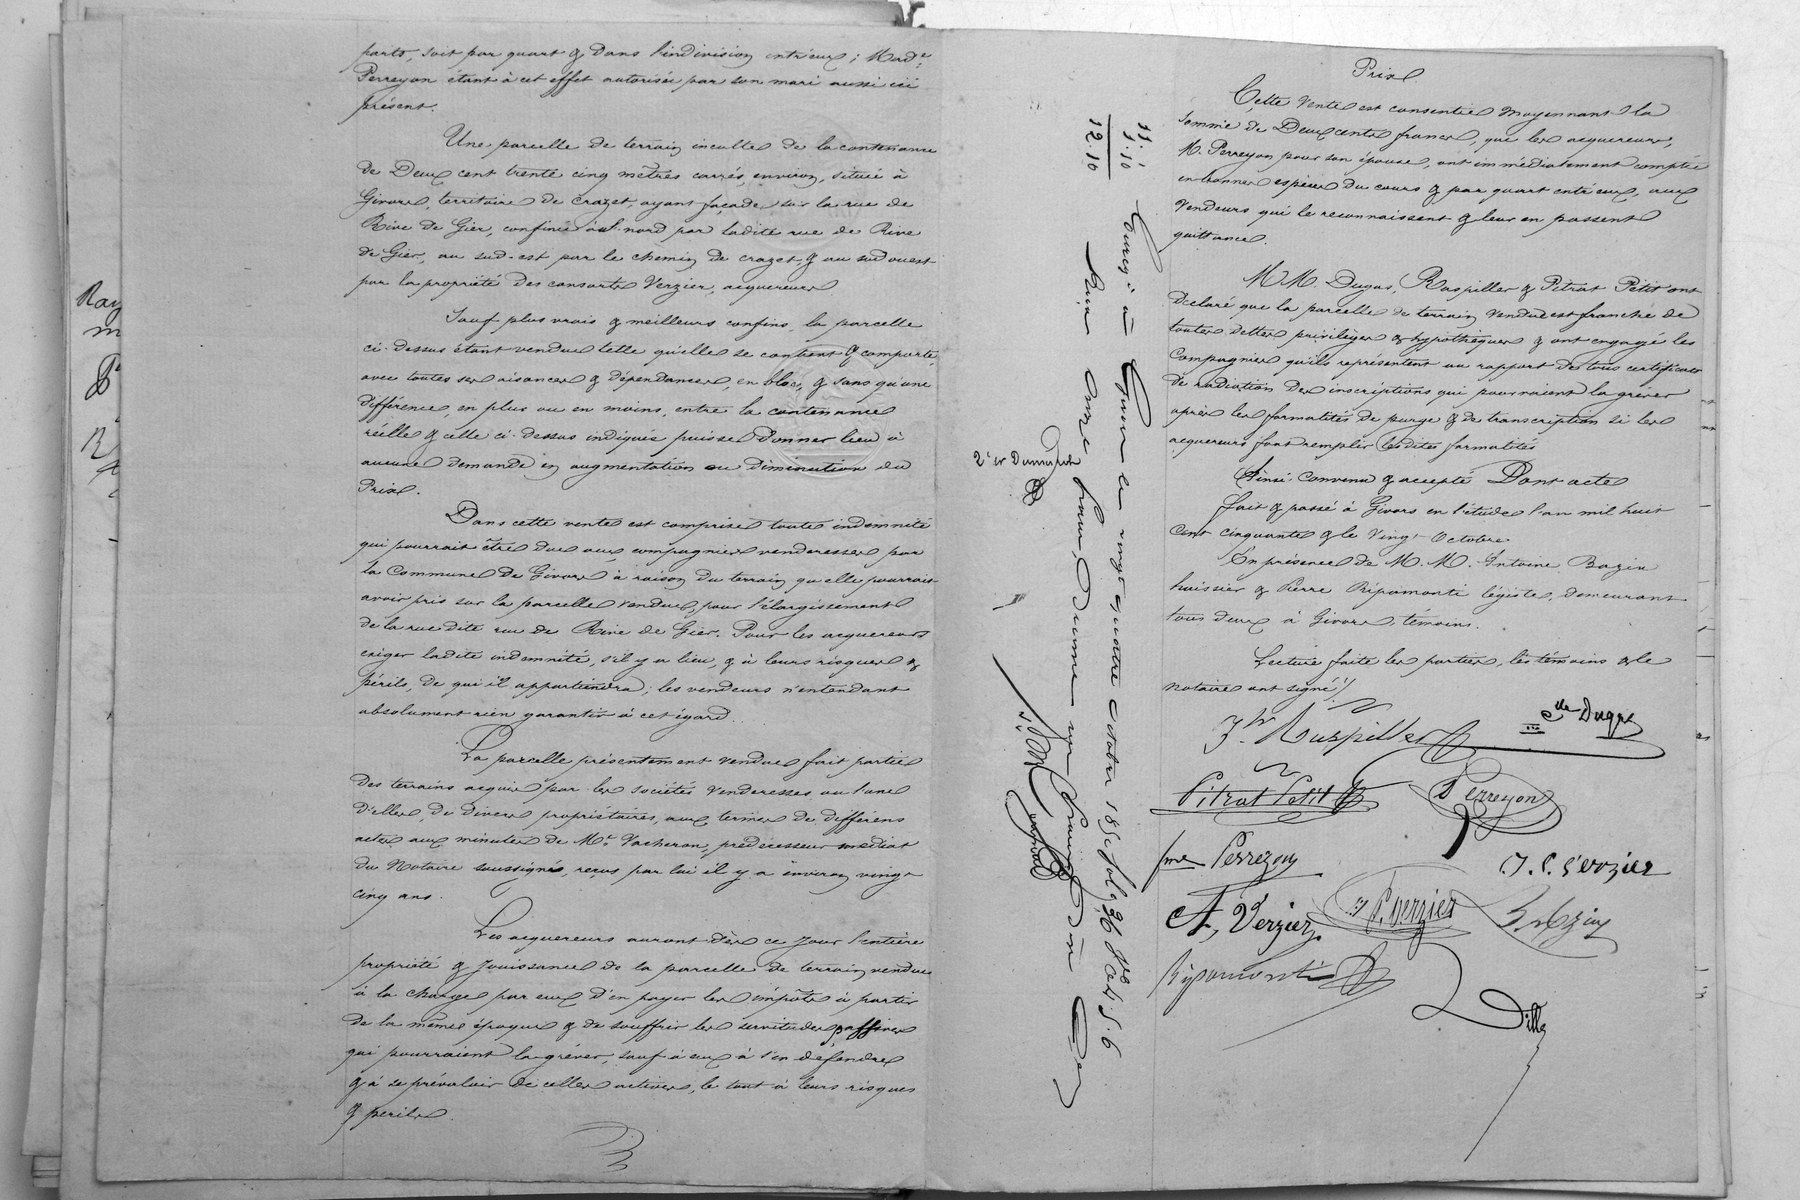 parts, soit par quart & dans l'indivision entr'eux; Made
Perreyon étant à cet effet autorisée par son mari aussi ici
présent.
Une parcelle de terrain inculte de la contenance
de Deux cent trente cinq mètres carrés, environ, située à
Givors, territoire de Crozet, ayant façade sur la rue de
Rive de Gier, confinée au nord par ladite rue de Rive
de Gier, au sud-est par le chemin de crozet, & au sud ouest
par la propriété des consorts Verzier, acquereurs
Sauf plus vrais & meilleurs confins, la parcelle
ci-dessus étant vendue telle qu'elle se contient & comporte,
avec toutes ses aisances & dépendances, en bloc, & sans qu'une
différence, en plus ou en moins, entre la contenance
réelle & celle ci-dessus indiquée puisse donner lieu à
aucune demande en augmentation ou diminution du
Prix.
Dans cette vente est comprise toute indemnité
qui pourrait être due aux compagnies venderesses par
la Commune de Givors à raison du terrain qu'elle pourrait
avoir pris sur la parcelle vendue, pour l'élargissement
de la rue dite rue de Rive de Gier. Pour les acquereurs
exiger ladite indemnité, s'il y a lieu, & à leurs risques &
périls, de qui il appartiendra; les vendeurs n'entendant
absolument rien garantir à cet égard.
La parcelle présentement vendue fait partie
des terrains acquis par les sociétés venderesses ou l'une
d'elles, de divers propriétaires, aux termes de différens
actes aux minutes de Mr Vacheron, prédécesseur médiat
du Notaire soussigné, reçus par lui il y a environ vingt
cinq ans.
Les acquereurs auront dès ce jour l'entière
propriété & jouissance de la parcelle de terrain vendue
à la charge par eux d'en payer les impôts à partir
de la même époque & de souffrir les servitudes passives
qui pourraient la gréver, sauf à eux à s'en défendre
& à se prévaloir de celles actives, le tout à leurs risques
& perils.
Prix
Cette vente est consentie moyennant la
somme de Deux cents francs, que les acquereurs,
M. Perreyon pour son épouse, ont immédiatement comptée
en bonnes espèces du cours & par quart entr'eux, aux
vendeurs qui le reconnaissent & leur en passent
quittance.
M.M. Dugas, Raspiller & Pitrat Petit ont
déclaré que la parcelle de terrain vendue est franche de
toutes dettes, privilèges & hypothèques & ont engagé les
compagnies qu'ils représentent au rapport de tous certificats
de radiation des inscriptions qui pourraient la gréver
après les formalités de purge & de transcription si les
acquereurs font remplir lesdites formalités
Ainsi convenu & accepté Dont acte
Fait & passé à Givors en l'étude l'an mil huit
cent cinquante & le vingt octobre
En présence de M.M. Antoine Bazin
huissier & Pierre Ripamonti légiste, demeurant
tous deux à Givors, témoins.
Lecture faite les parties, les témoins & le
notaire ont signé
Jh Raspiller
Dugas
Pitrat Petit
Perreyon
fme Perrezon
J. C. Verzier
A. Verzier
P. Verzier
Bazin
Ripamonti
11.10
1.10
12.10